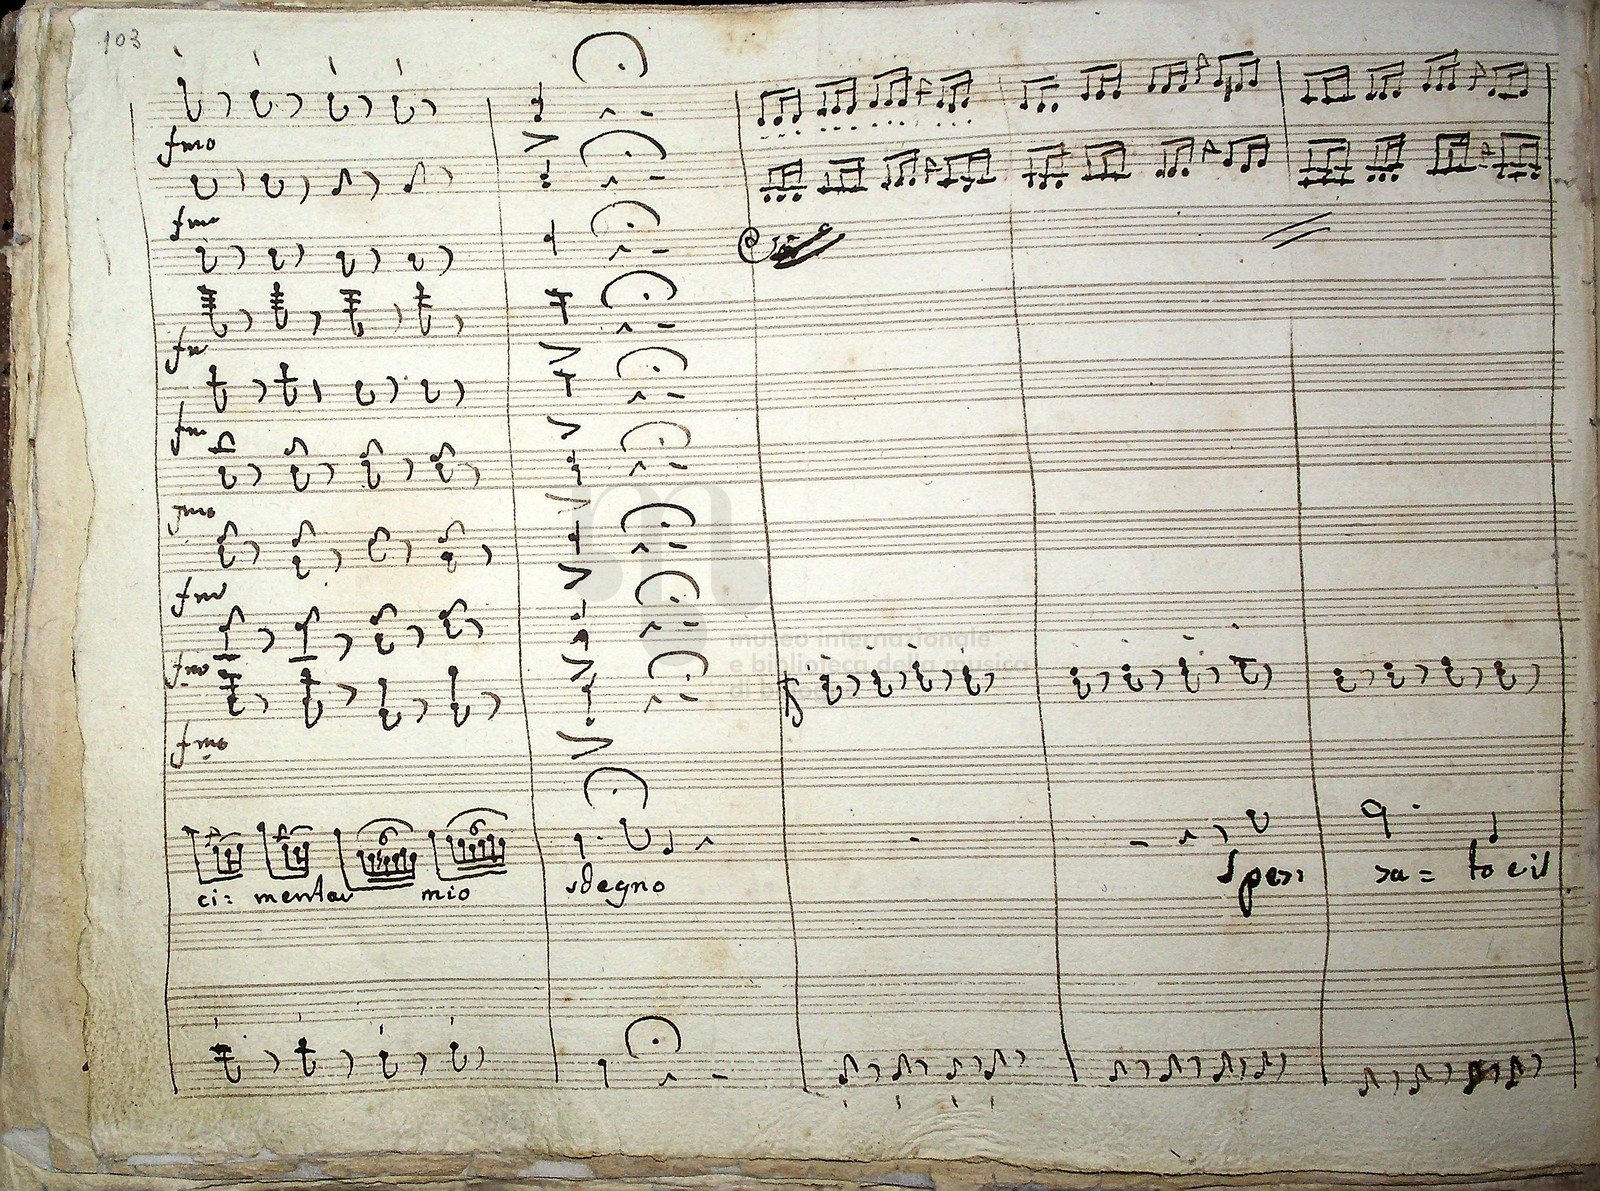 103
fmo
fmo
fm
fm
fmo
fmo
fmo
fmo
museo internazionale
e biblioteca della musica
di bologna
ci= mentar mio sdegno
spera= to e il